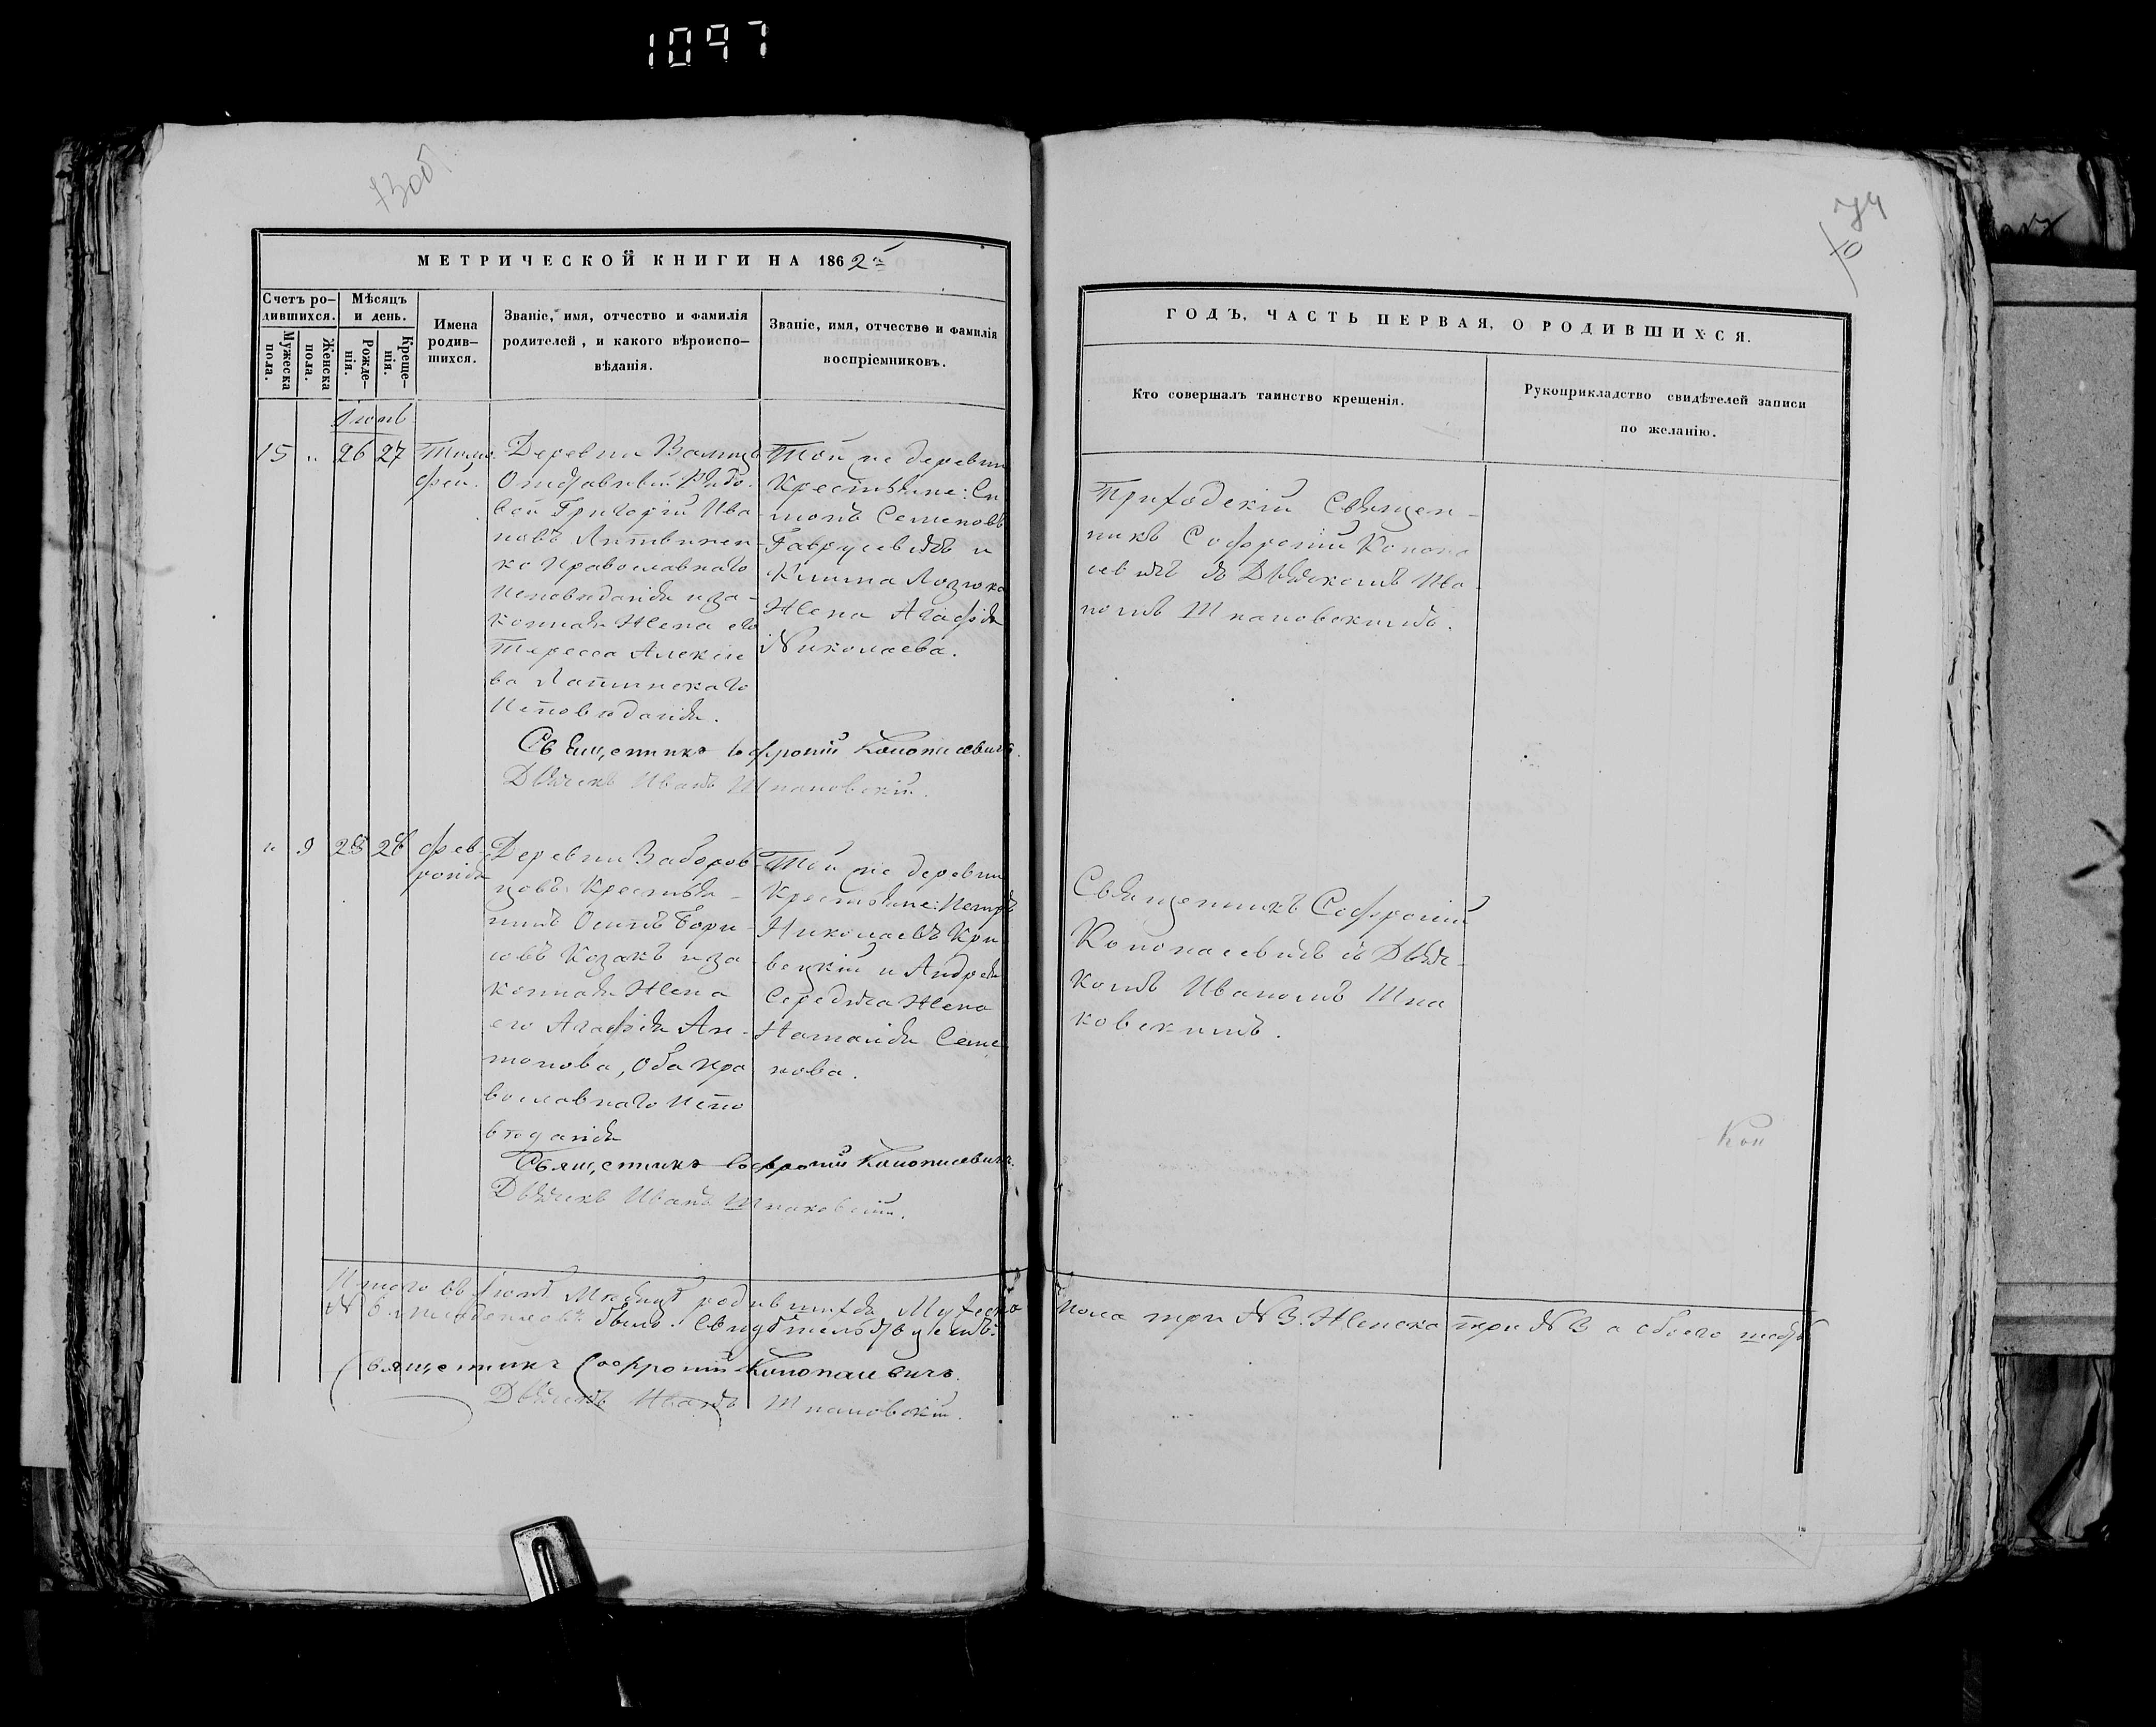 1097
73об
МЕТРИЧЕСКОЙ КНИГИ НА 1862й
Счетъ ро-
дившихся.
Мужеска
пола.
Женска
пола.
Мѣсяцъ
и день.
Рожде-
нія.
Креще-
нія.
Имена
родив-
шихся.
Званіе, имя, отчество и фамилія
родителей, и какого вѣроиспо-
вѣданія.
Званіе, имя, отчество и фамилія
воспріемниковъ.
Іюнь
15 " 26 27
Тимо-
фей.
Деревни
Григорій Ива-
новъ Литвинен-
ко православнаго
исповѣданія и за-
конная жена его
Тересса Алексѣе
ва Латинскаго
исповѣданія.
Той же деревни
Крестьяне: Си
монъ Семеновъ
и
Жена Агафія
Николаева.
Священникъ Софроній Конопасевичъ.
Дьячекъ Иванъ Шпаковскій.
" 9 28
Фев-
ронія
Деревни Заборов-
цовъ Крестья-
нинъ Осипъ Бори-
совъ Козакъ и за-
конная жена
его Агафія Ан-
тонова, оба пра
вославнаго испо
вѣданія
Той же деревни
Крестьяне: Петръ
Николаевъ Кри
вецкій и Андрея
Середюка жена
Наталія Семе
нова.
Священникъ Софроній Конопасевичъ.
Дьячекъ Иванъ Шпаковскій.
Итого въ Іюнѣ мѣсяцѣ родившихся Мужеска
было. Свидѣтельствуемъ:
Священникъ Софроній Конопасевичъ.
Дьячекъ Иванъ Шпаковскій.
74
ГОДЪ, ЧАСТЬ ПЕРВАЯ, О РОДИВШИХСЯ.
Кто совершалъ таинство крещенія.
Рукоприкладство свидѣтелей записи
по желанію.
Приходскій Священ-
никъ Софроній Конопа
севичъ съ Дьячкомъ Ива
номъ Шпаковскимъ.
Священникъ Софроній
Конопасевичъ съ Дьяч-
комъ Иваномъ Шпа
ковскимъ.
Кон
пола три № 3. Женска три № 3 а обоего шесть